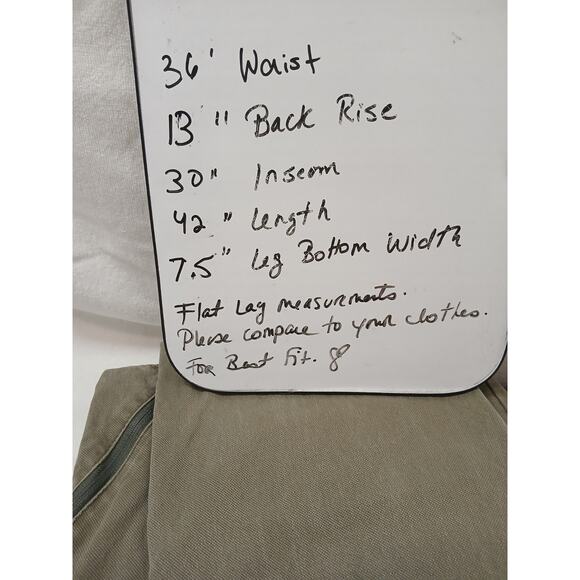 36' Waist
13" Back Rise
30" Inseam
42" Length
7.5" Leg Bottom Width
Flat Lag measurements.
Please compare to your clothes.
For Best Fit.